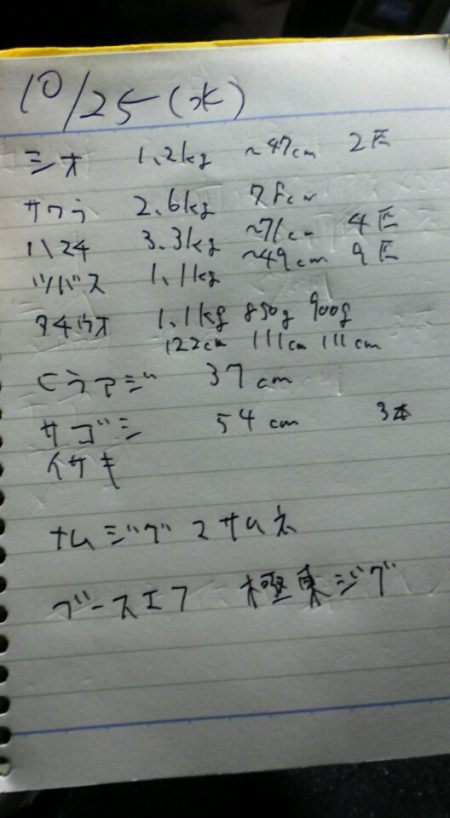 10/25(水)
シオ 1.2kg ~47cm 2匹
サワラ 2.6kg 78cm
ハマチ 3.3kg ~71cm 4匹
ツバス 1.1kg ~49cm 9匹
タチウオ 1.1kg 850g 900g
122cm 111cm 111cm
ヒラアジ 37cm
サゴシ 54cm 3本
イサキ
サムジグ マサムネ
ブースエフ 極東ジグ